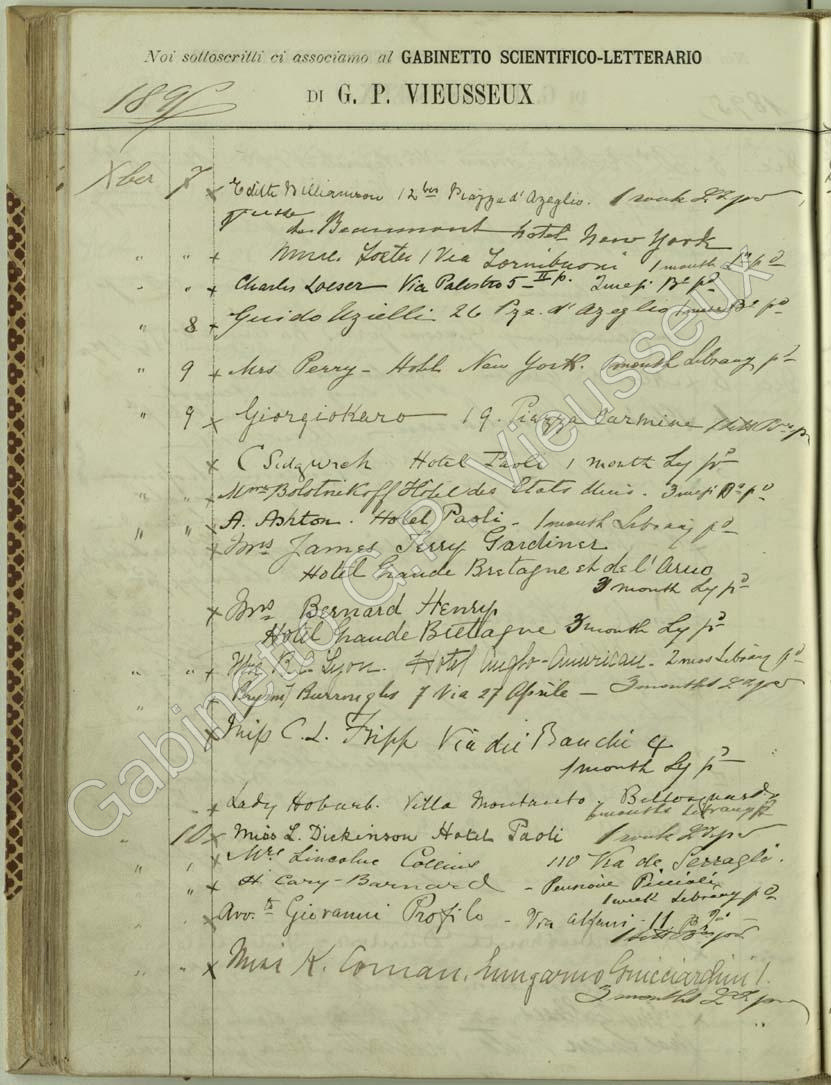 Noi sottoscritti ci associamo al GABINETTO SCIENTIFICO-LETTERARIO
DI G. P. VIEUSSEUX
189
Xber 7 x Edith Williamson 12 bis Piazza d'Azeglio. 1 week
de Beaumont hotel New York
" " x 1 Via Tornibuoni 1 month pd
" " x Charles Loeser Via Palestro 5 - II p. 2 mesi pd
" 8 x Guido Uzielli 26 Pza. d'Azeglio pd
" 9 x Mrs Perry - Hotel New York. 1 month Library pd
" 9 x Giorgio Karo 19. Piazza Carmine
x C Sidgwick Hotel Paoli 1 month Ly pd
" " x Mme Bolotnikoff Hôtel des Etats Unis. 3 mesi pd
" " x A. Ashton. Hotel Paoli - 1 month Library pd
x Mrs James Terry Gardiner
Hotel Grande Bretagne et de l'Arno
3 month Ly pd
x Mrs Bernard Henry
Hotel Grande Bretagne 3 month Ly pd
" " x Lyon. Hotel Anglo-American - 2 mos Library pd
" x Burroughs 7 Via 27 Aprile - 3 months
x Miss C. L. Fripp Via dei Banchi 4
1 month Ly pd
x Lady Hobart. Villa Montauto, Bellosguardo
months Library pd
" 10 x Miss L. Dickinson Hotel Paoli 1 week
" " x Mrs Lincolne Collins 110 Via de Serragli.
" x H Cary-Barnard - Pensione Piccioli
1 week Library pd
" x Avvto Giovanni Profilo - Via Alfani - 11
" " x Miss K. Coman. Lungarno Guicciardini 1.
3 months
Gabinetto G.P. Vieusseux